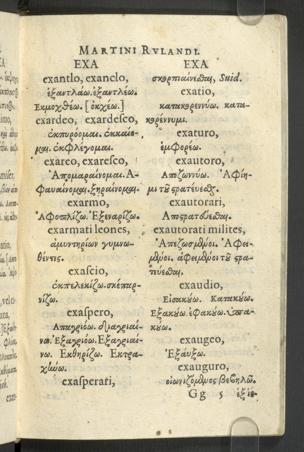 MARTINI RVLANDI.
EXA
exantlo, exanclo,
ἐξαντλάω. ἐξαντλέω.
Ἐκμοχθέω. [ἐκχέω.]
exardeo, exardesco,
ἐκπυρόομαι. ἐκκαίο-
μαι. ἐκφλέγομαι.
exareo, exaresco,
Ἀπομαραίνομαι. Ἀ-
φαυαίνομαι. ξηραίνομαι.
exarmo,
Ἀφοπλίζω. Ἐξεναρίζω.
exarmati leones,
ἀμυντηρίων γυμνω-
θέντες.
exascio,
ἐκπελεκίζω. σκεπαρ-
νίζω.
exaspero,
Ἐξαγριόω. Ἐξαγριαί-
νω. Ἐκθηρίζω. Ἐκτρα-
χύνω.
exasperati,
EXA
Suid.
exatio,
κατακορεννύω. κατα-
κορέννυμι.
exaturo,
ἐμφορέω.
exautoro,
Ἀποζωννύω. Ἀφίη-
μι τοῦ στρατεύεσθαι.
exautorari,
Ἀποστρατεύεσθαι.
exautorati milites,
Ἀπεζωσμένοι. Ἀφει-
μένοι. ἀφειμένοι τοῦ στρα-
τεύεσθαι.
exaudio,
Εἰσακούω. Κατακούω.
Ἐξακούω. ἐφακούω. Ὑπα-
κούω.
exaugeo,
Ἐξαύξω.
exauguro,
οἰωνιζόμενος βεβηλῶ.
Gg 5